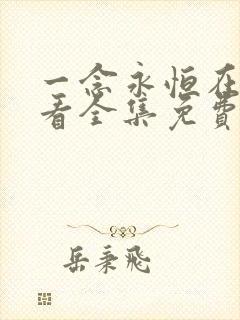 一念永恒在
看全集免费
岳秉飛